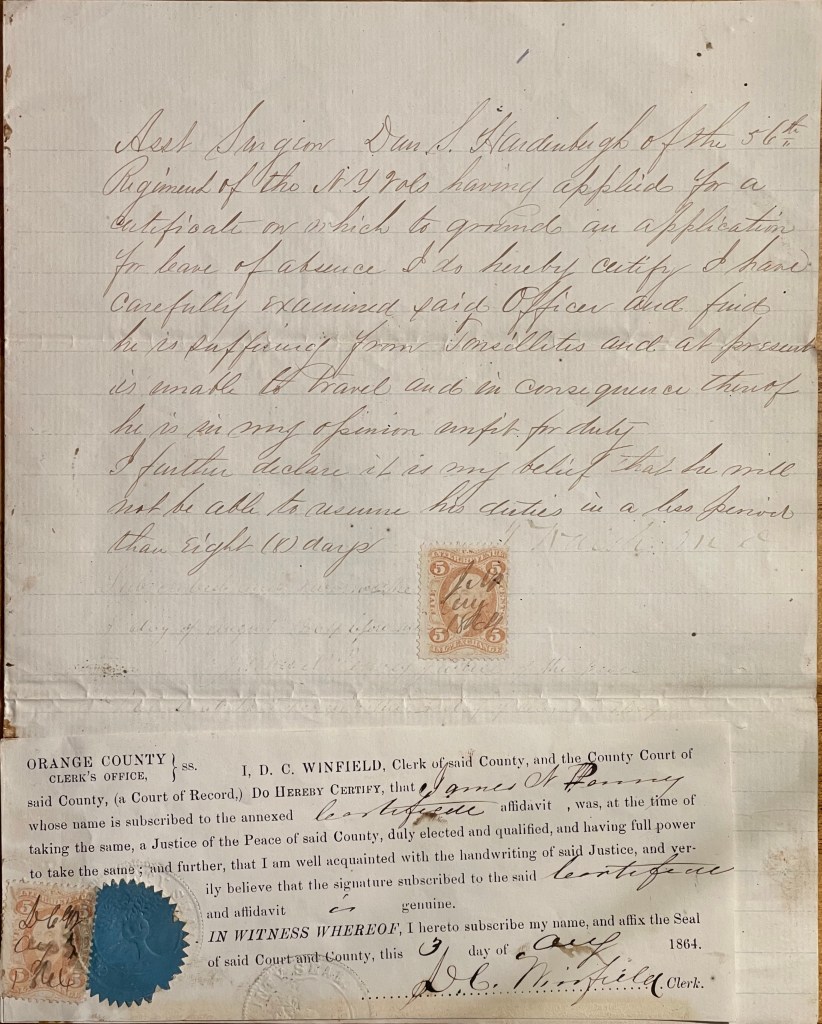 Asst Surgeon Dan S. Hardenburgh of the 56th
Regiment of the N.Y Vols having applied for a
certificate on which to ground an application
for leave of absence I do hereby certify I have
carefully examined said Officer and find
he is suffering from Tonsilletis and at present
is unable to travel and in consequence thereof
he is in my opinion unfit for duty
I further declare it is my belief that he will
not be able to resume his duties in a less period
than Eight (8) days
5 5
Aug
1864
5 5
ORANGE COUNTY } ss. I, D. C. WINFIELD, Clerk of said County, and the County Court of
CLERK'S OFFICE,
said County, (a Court of Record,) DO HEREBY CERTIFY, that James N
whose name is subscribed to the annexed Certificate affidavit , was, at the time of
taking the same, a Justice of the Peace of said County, duly elected and qualified, and having full power
to take the same; and further, that I am well acquainted with the handwriting of said Justice, and ver-
ily believe that the signature subscribed to the said Certificate
and affidavit is genuine.
IN WITNESS WHEREOF, I hereto subscribe my name, and affix the Seal
of said Court and County, this 3 day of Aug 1864.
D. C. Winfield. Clerk.
D C W
Aug 3